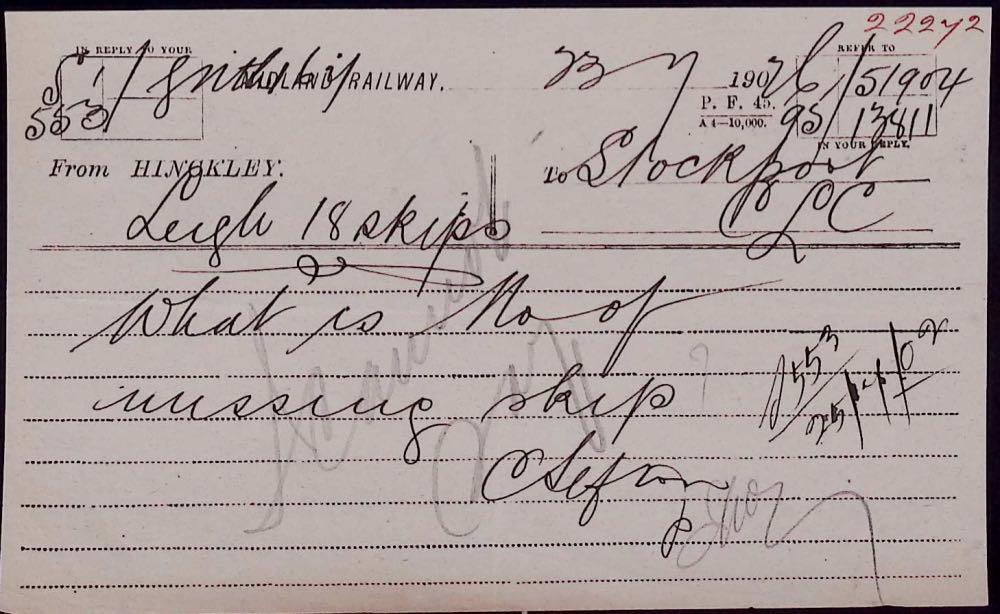 22272
IN REPLY TO YOUR
MIDLAND RAILWAY.
23 7 1902
REFER TO
S 1/
553
P. F. 45.
A 4—10,000.
6/51904
95/13811
IN YOUR REPLY.
From HINCKLEY.
To Stockport
CLC
Leigh 18 skips
What is No of
missing skip
?
S553
02